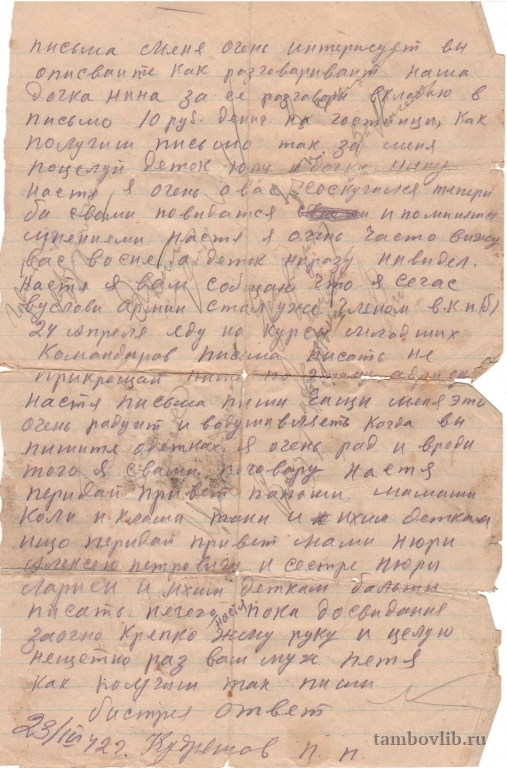 письма меня очень интирисует вы
описваити как разговариваит наша
дочка нина за её разговоры вкладаю в
письмо 10 руб. дениг на гостинци, как
получиш письмо так за меня
поцелуй деток юлу и дочку нину
настя я очень о вас соскучился тепери
ба свами повидатся и поминятся
мнениями настя я очень часто вижу
вас восне а деток ниразу нивидел.
настя я вам собщаю что я сечас
вуслови армии стал уже членом в.к.п(б)
24 апреля еду на курси младших
командиров писма писать не
прикрощай пиши по
настя письма пиши чащи меня это
очень радуит и водушивляеть когда вы
пишити одетках я очень рад и вроди
того я свами поговару настя
пиридай привет папаши мамаши
коли и клаши тани и ихим деткам
ищо пиридай привет мами нюри
алексею петровичу и сестре нюри
ларисы и ихим деткам больши
писать нечего настя пока досвидания
заочно крепко жму руку и целую
нещетно раз ваш муж петя
как получиш так пиши
бистрея ответ
23/IV 42 г. П. П.
tambovlib.ru